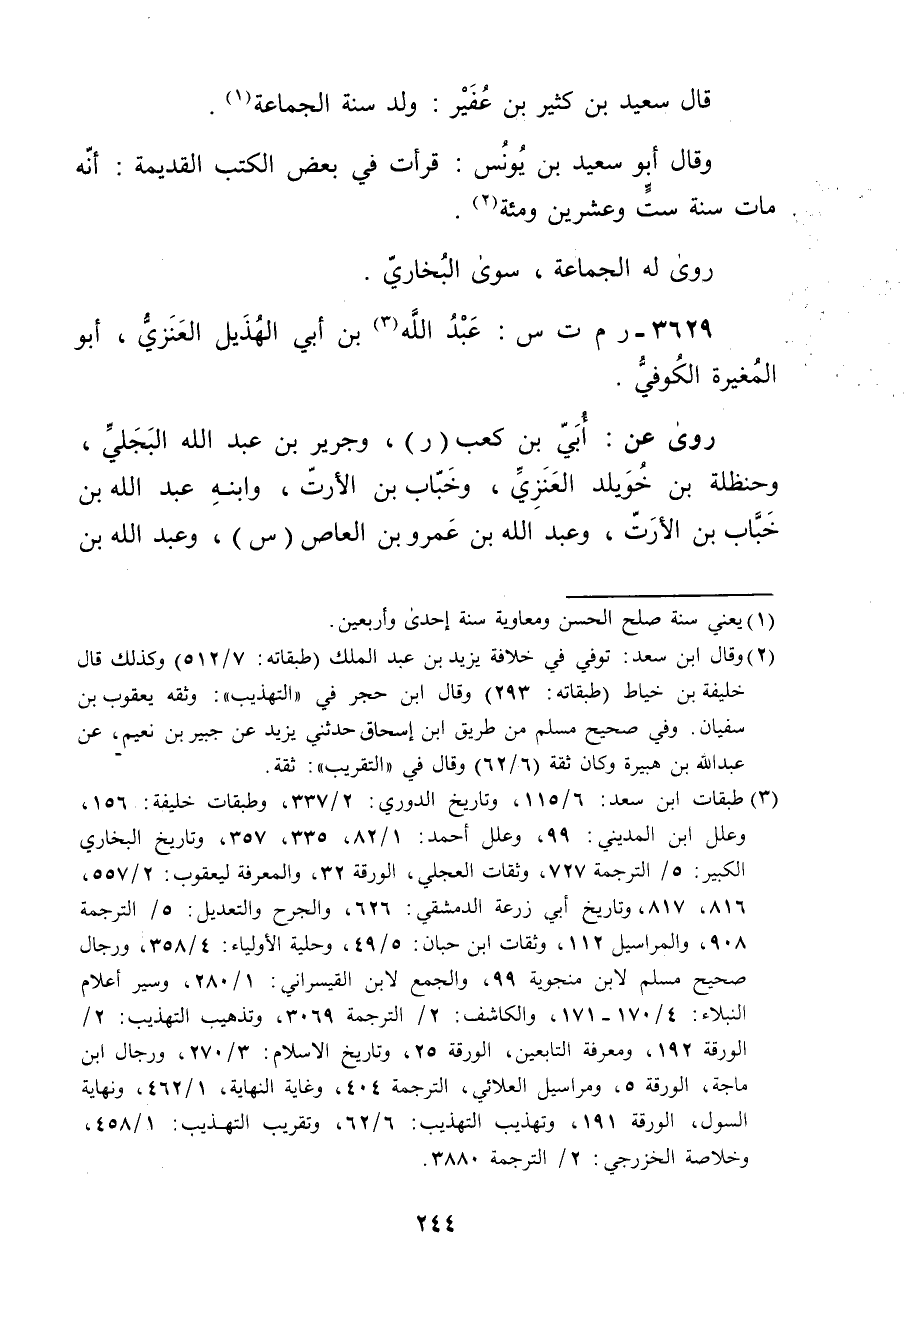 قال سعيد بن كثير بن عُفَيْر : ولد سنة الجماعة(١) .
وقال أبو سعيد بن يُونُس : قرأت في بعض الكتب القديمة : أنّه
مات سنة ستٍّ وعشرين ومئة(٢) .
روىٰ له الجماعة ، سوىٰ البُخاريّ .
٣٦٢٩ـ ر م ت س : عَبْدُ اللَّه(٣) بن أبي الهُذَيل العَنَزيُّ ، أبو
المُغيرة الكُوفيُّ .
روىٰ عن : أُبَيّ بن كعب (ر) ، وجرير بن عبد الله البَجَليِّ ،
وحنظلة بن خُوَيلد العَنَزِيِّ ، وخَبّاب بن الأرتّ ، وابنهِ عبد الله بن
خَبَّاب بن الأرَتّ ، وعبد الله بن عَمرو بن العاص (س) ، وعبد الله بن
(١) يعني سنة صلح الحسن ومعاوية سنة إحدىٰ وأربعين.
(٢) وقال ابن سعد: توفي في خلافة يزيد بن عبد الملك (طبقاته: ٥١٢/٧) وكذلك قال
خليفة بن خياط (طبقاته: ٢٩٣) وقال ابن حجر في «التهذيب»: وثقه يعقوب بن
سفيان. وفي صحيح مسلم من طريق ابن إسحاق حدثني يزيد عن جبير بن نعيم، عن
عبدالله بن هبيرة وكان ثقة (٦٢/٦) وقال في «التقريب»: ثقة.
(٣) طبقات ابن سعد: ١١٥/٦، وتاريخ الدوري: ٣٣٧/٢، وطبقات خليفة: ١٥٦،
وعلل ابن المديني: ٩٩، وعلل أحمد: ٨٢/١، ٣٣٥، ٣٥٧، وتاريخ البخاري
الكبير: ٥/ الترجمة ٧٢٧، وثقات العجلي، الورقة ٣٢، والمعرفة ليعقوب: ٥٥٧/٢،
٨١٦، ٨١٧، وتاريخ أبي زرعة الدمشقي: ٦٢٦، والجرح والتعديل: ٥/ الترجمة
٩٠٨، والمراسيل ١١٢، وثقات ابن حبان: ٤٩/٥، وحلية الأولياء: ٣٥٨/٤، ورجال
صحيح مسلم لابن منجوية ٩٩، والجمع لابن القيسراني: ٢٨٠/١، وسير أعلام
النبلاء: ١٧٠/٤ ـ ١٧١، والكاشف: ٢/ الترجمة ٣٠٦٩، وتذهيب التهذيب: ٢/
الورقة ١٩٢، ومعرفة التابعين، الورقة ٢٥، وتاريخ الاسلام: ٢٧٠/٣، ورجال ابن
ماجة، الورقة ٥، ومراسيل العلائي، الترجمة ٤٠٤، وغاية النهاية، ٤٦٢/١، ونهاية
السول، الورقة ١٩١، وتهذيب التهذيب: ٦٢/٦، وتقريب التهـذيب: ٤٥٨/١،
وخلاصة الخزرجي: ٢/ الترجمة ٣٨٨٠.
٢٤٤